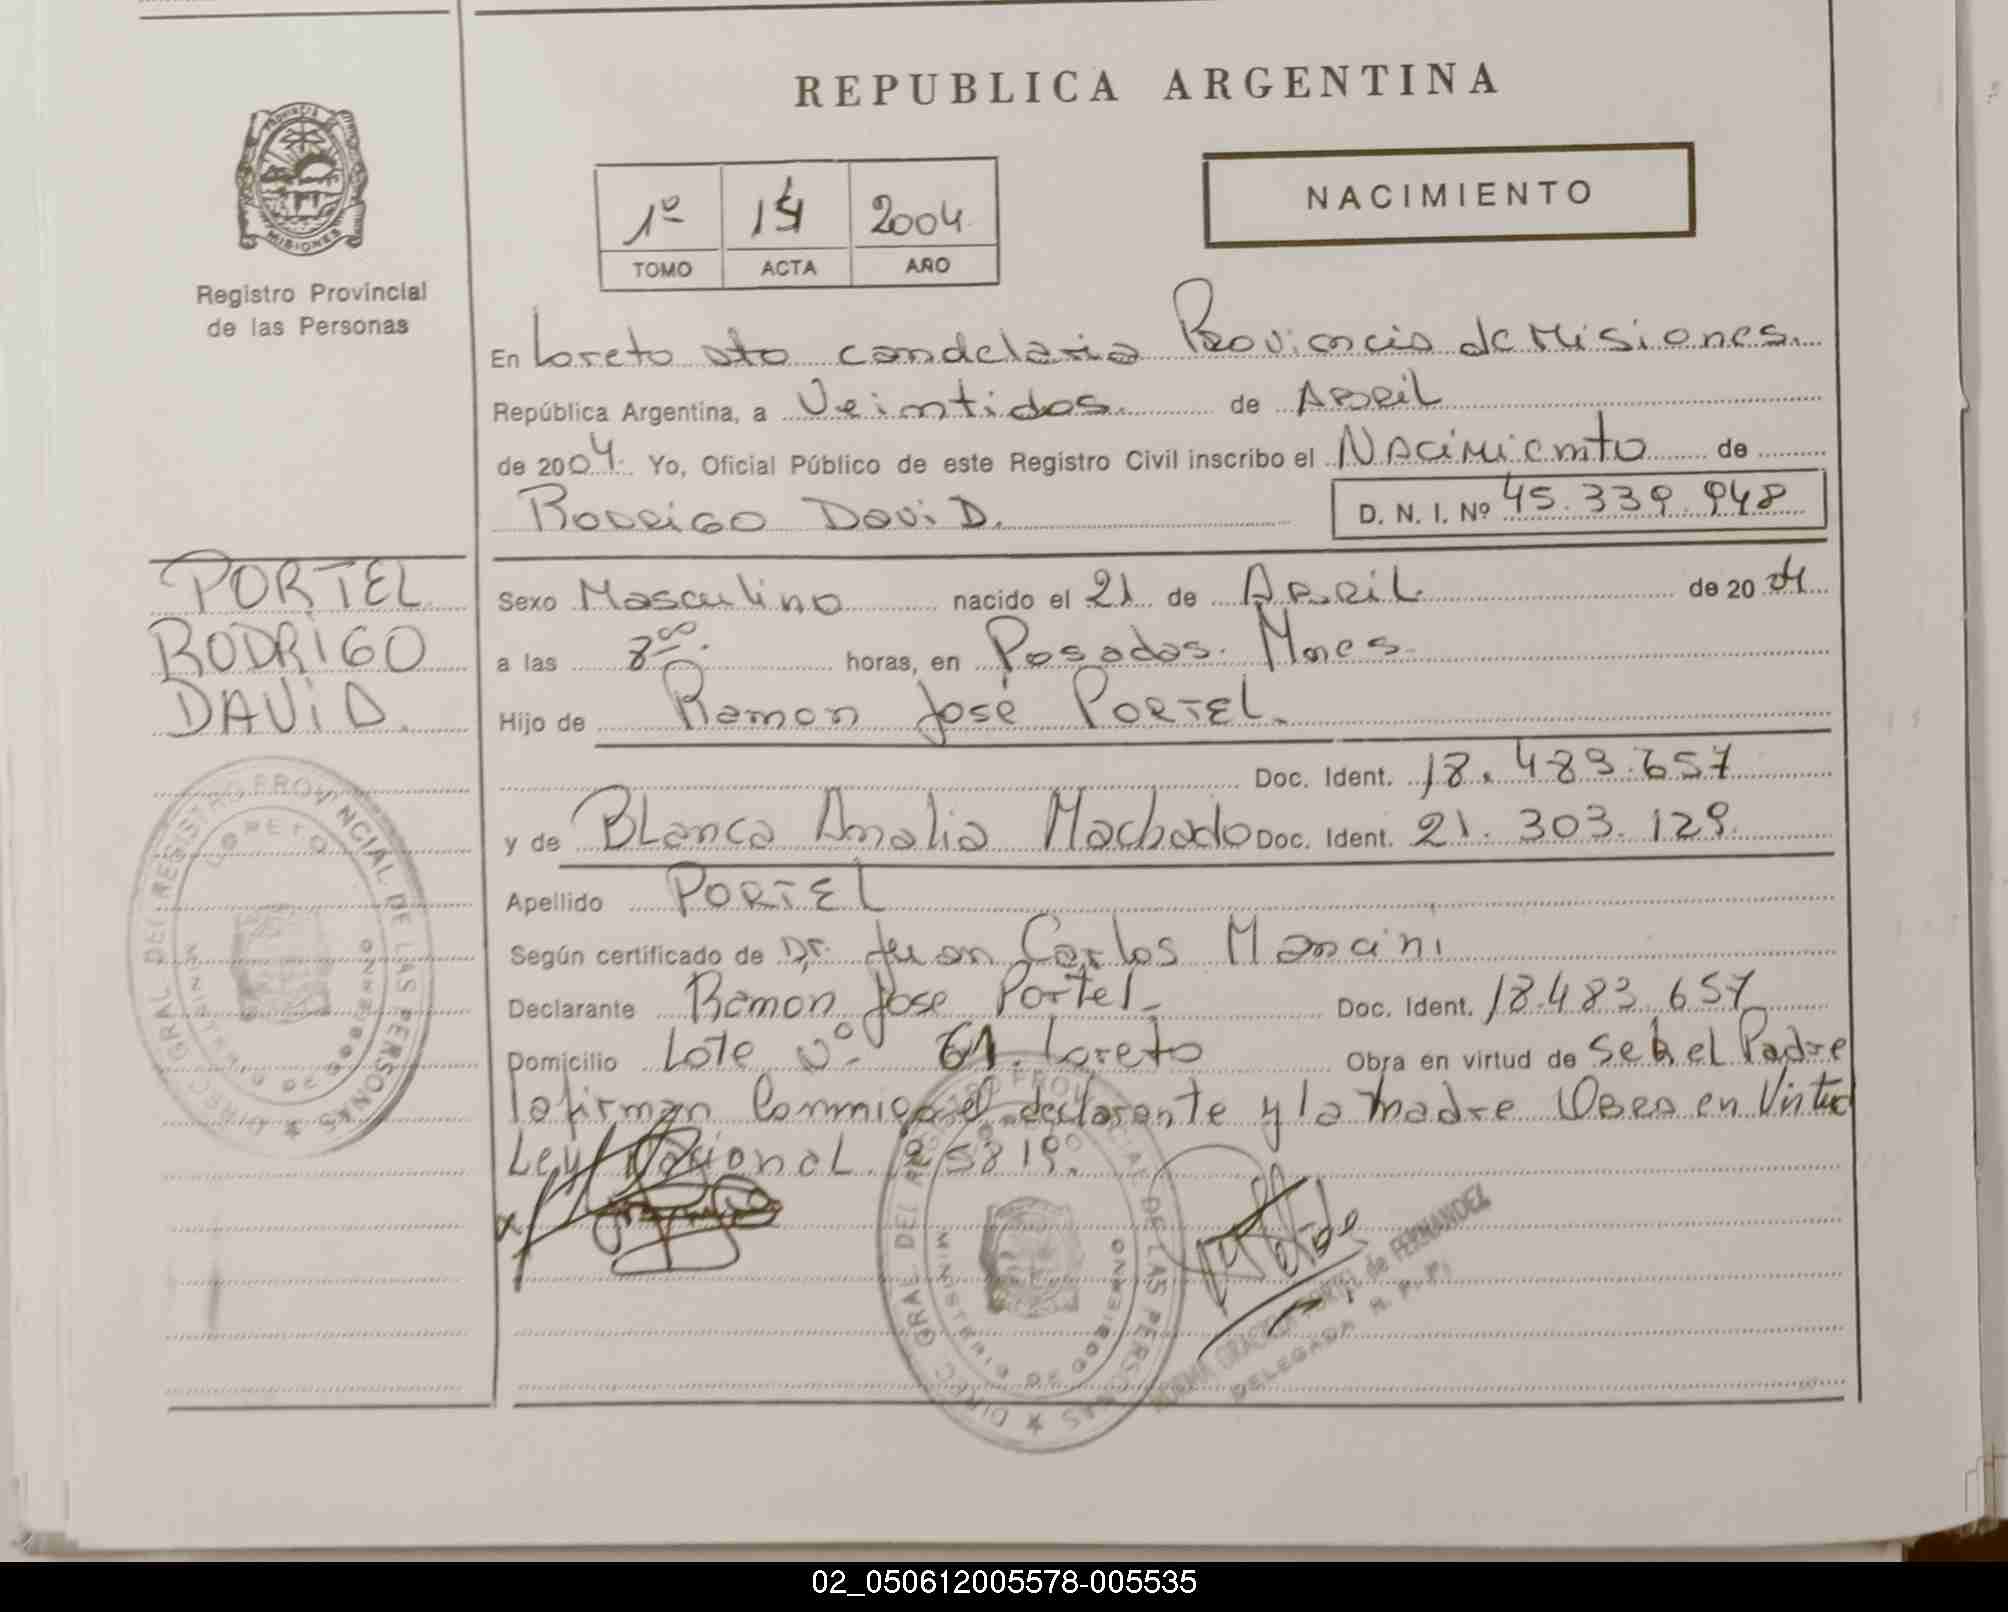 REPUBLICA ARGENTINA
PROVINCIA
MISIONES
Registro Provincial
de las Personas
1º 2004
TOMO ACTA AÑO
NACIMIENTO
En Loreto dto candelaria Provincia de Misiones.
República Argentina, a Veintidos. de ABRIL
de 2004. Yo, Oficial Público de este Registro Civil inscribo el NAciMiento de
RODRiGO DaviD. D. N. I. Nº 45.339.948
PORTEL
RODRIGO
DAViD.
Sexo Masculino nacido el 21 de ABRIL de 2004
a las 8ºº. horas, en Posadas. Mnes.
Hijo de Ramon José PORTEL.
Doc. Ident. 18.483.657
y de BLanca Amalia Machado Doc. Ident. 21.303.129
Apellido PORTEL
Según certificado de Dr. Juan Carlos Mancini
Declarante Ramon Jose Portel Doc. Ident. 18.483.657
Domicilio Lote nº 61. Loreto Obra en virtud de Ser el Padre
lofirman Conmigo el declarante y la Madre OBRA en Virtud
Ley Nacional 25819.
DIREC. GRAL. DEL REGISTRO PROVINCIAL DE LAS PERSONAS
LORETO
MINISTERIO DE GOBIERNO
DIREC. GRAL. DEL REGISTRO PROVINCIAL DE LAS PERSONAS
MINISTERIO DE GOBIERNO
NORMA GRACIELA PORTEL de FERNANDEZ
DELEGADA R. P. P.
02_050612005578-005535